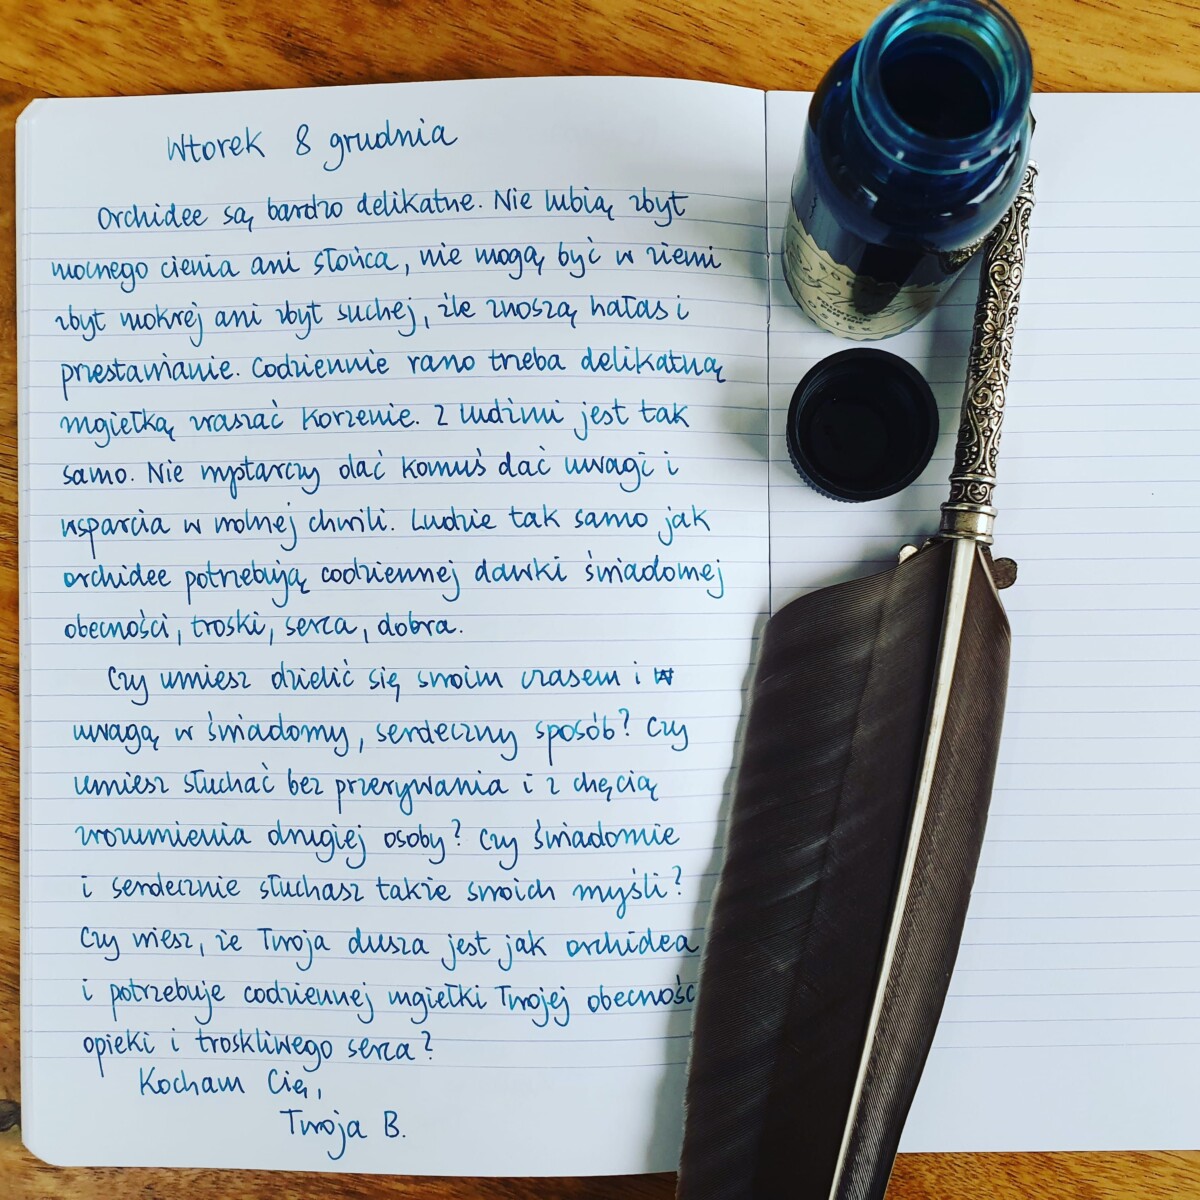 Wtorek 8 grudnia
Orchidee są bardzo delikatne. Nie lubią zbyt
mocnego cienia ani słońca, nie mogą być w ziemi
zbyt mokrej ani zbyt suchej, źle znoszą hałas i
przestawianie. Codziennie rano trzeba delikatną
mgiełką zraszać korzenie. Z ludźmi jest tak
samo. Nie wystarczy dać komuś dać uwagi i
wsparcia w wolnej chwili. Ludzie tak samo jak
orchidee potrzebują codziennej dawki świadomej
obecności, troski, serca, dobra.
Czy umiesz dzielić się swoim czasem i
uwagą w świadomy, serdeczny sposób? Czy
umiesz słuchać bez przerywania i z chęcią
zrozumienia drugiej osoby? Czy świadomie
i serdecznie słuchasz także swoich myśli?
Czy wiesz, że Twoja dusza jest jak orchidea
i potrzebuje codziennej mgiełki Twojej obecnośc
opieki i troskliwego serca?
Kocham Cię,
Twoja B.